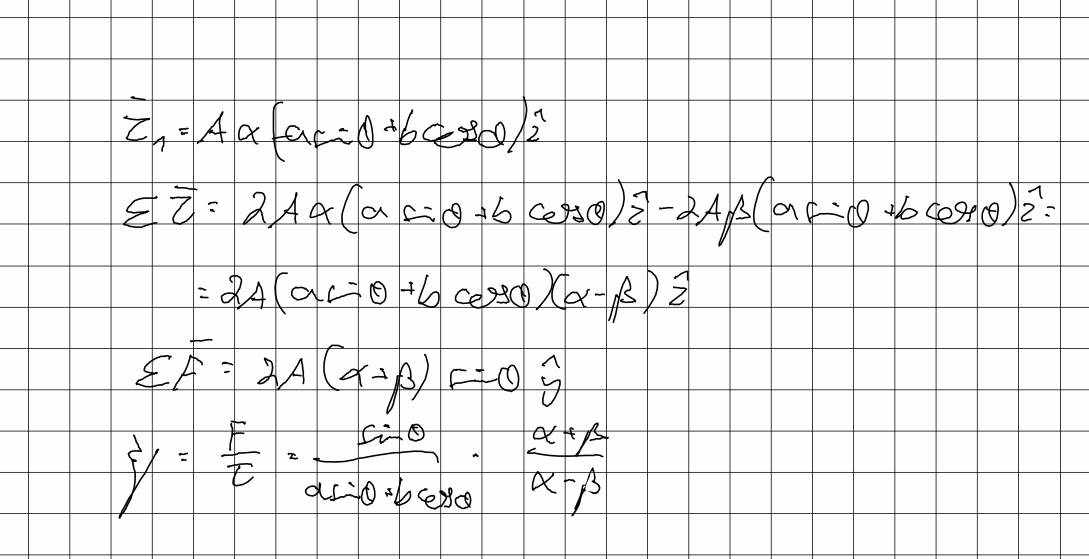 τ̄₁ = Aα(a sinθ + b cosθ)ẑ
Στ̄ = 2Aα(a sinθ + b cosθ)ẑ - 2Aβ(a sinθ + b cosθ)ẑ =
= 2A(a sinθ + b cosθ)(α - β)ẑ
ΣF̄ = 2A(α + β) sinθ ŷ
= F/τ = sinθ/(a sinθ + b cosθ) · (α + β)/(α - β)